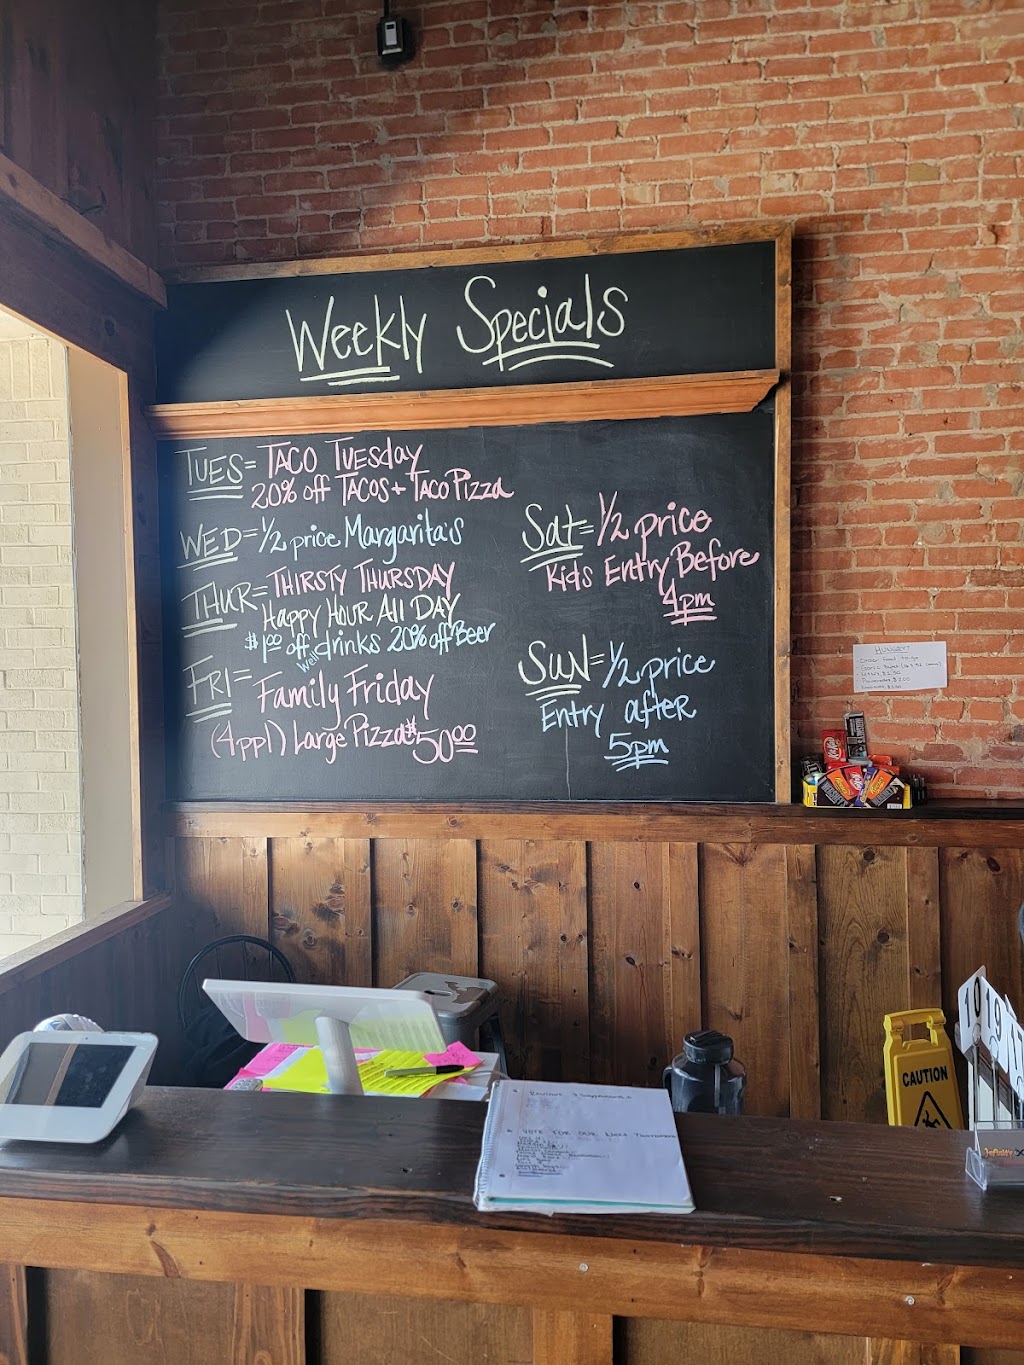 Weekly Specials
TUES = TACO TUESday
20% off TACOS + TACO Pizza
WED = 1/2 price Margarita's
THUR = THIRSTY THURSDAY
HAPPY HOUR All DAY
$1.00 off Well drinks 20% off Beer
FRI = Family Friday
(4ppl) Large Pizza $50.00
Sat = 1/2 price
Kids Entry Before
4pm
SUN = 1/2 price
Entry after
5pm
HUNGRY?
CAUTION
19